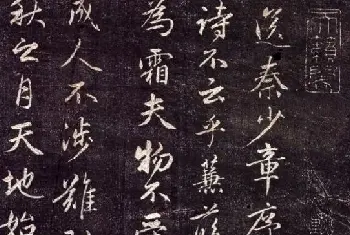 天籟閣
送秦少章序
詩不云乎蒹葭
為霜夫物不受
成人不涉難則
秋之月天地始